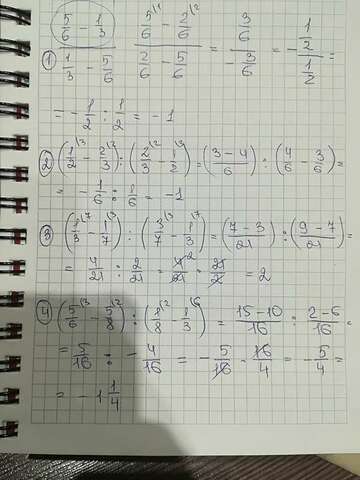 ① (5/6 - 1/3)/(1/3 - 5/6) (5/6\1 - 2/6\2)/(2/6 - 5/6) = (3/6)/(-3/6) = -(1/2)/(1/2) =
= - 1/2 : 1/2 = - 1
② (1/2\3 - 2/3\2) : (2/3\2 - 1/2\3) = (3-4)/6 : (4/6 - 3/6) =
= - 1/6 : 1/6 = - 1
③ (1/3\7 - 1/7\3) : (3/7\3 - 1/3\7) = (7-3)/21 : (9-7)/21 =
= 4/21 : 2/21 = 4/21 · 21/2 = 2
④ (5/6\3 - 5/8\2) : (1/8\2 - 1/3\6) = 15-10/16 : 2-6/16 =
= 5/16 : - 4/16 = - 5/16 · 16/4 = - 5/4 =
= - 1 1/4